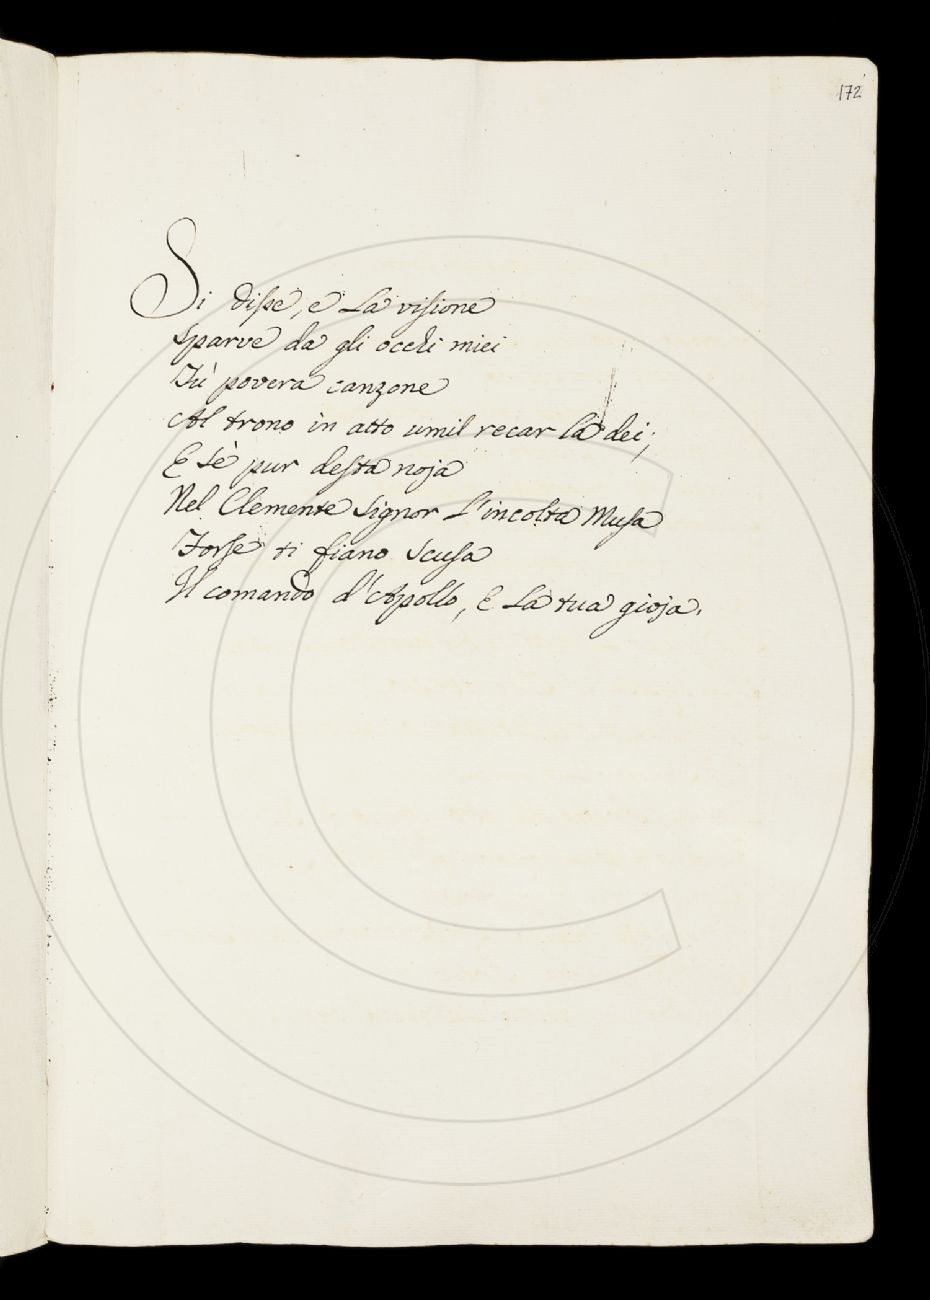 172
Si disse, e La visione
Sparve da gli occhi miei
Tù povera canzone
Al trono in atto umil recar la dei;
E sè pur desta noja
Nel Clemente Signor L'incolta Musa
Forse ti fiano Scusa
Il comando d'Apollo, E La tua gioja.